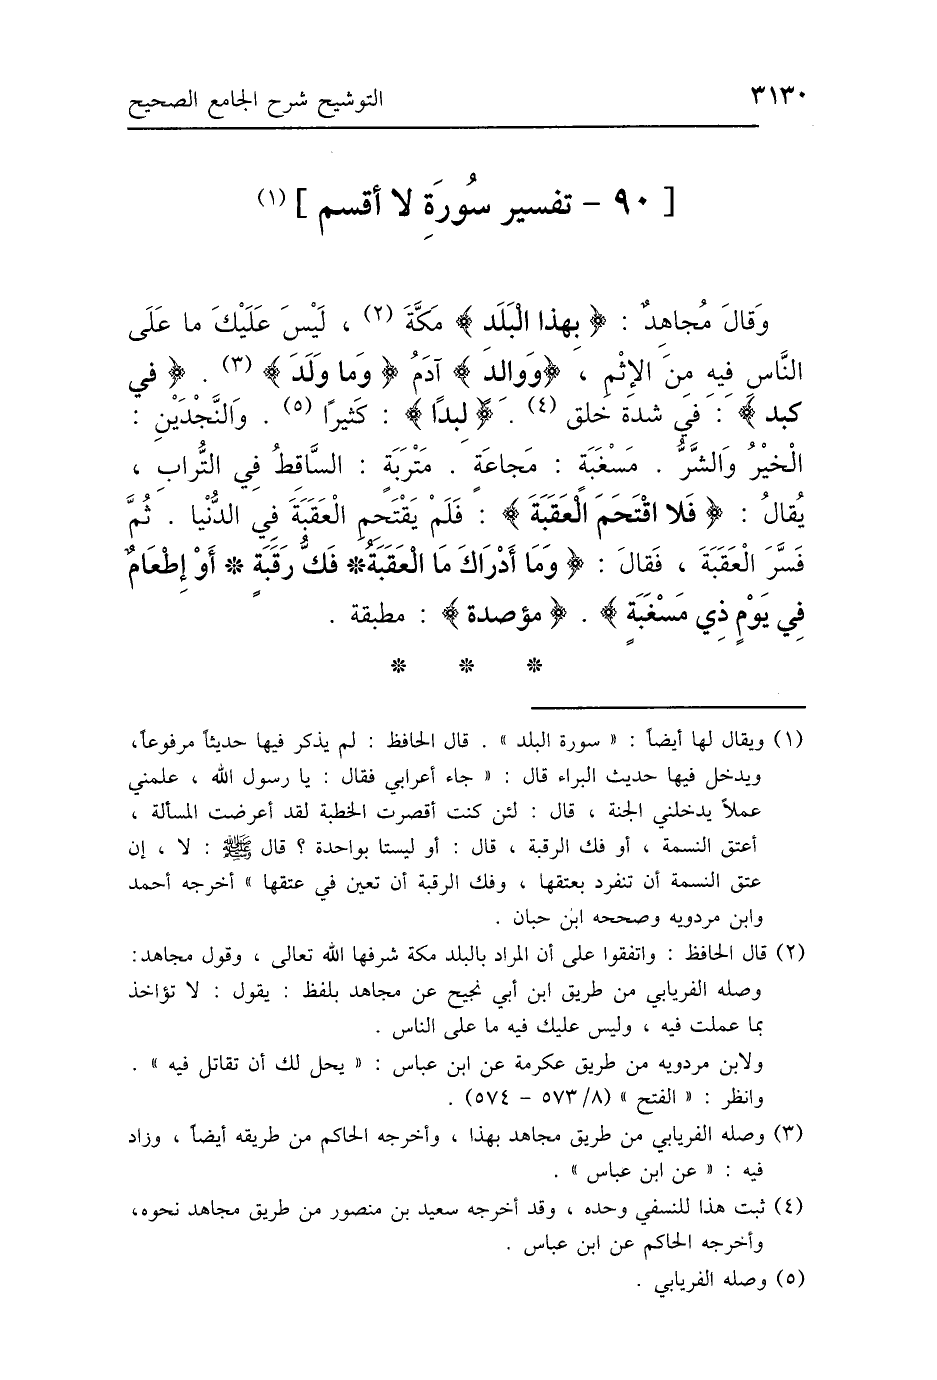 ٣١٣٠ التوشيح شرح الجامع الصحيح
[ ٩٠ - تفسير سُورَةِ لا أقسم ] (١)
وَقالَ مُجاهِدٌ : ﴿ بِهذا الْبَلَدِ ﴾ مَكَّةَ (٢) ، لَيْسَ عَلَيْكَ ما عَلَى
النَّاسِ فِيهِ مِنَ الإِثْمِ ، ﴿وَوَالِدٍ ﴾ آدَمُ ﴿ وَما وَلَدَ ﴾ (٣) . ﴿ في
كبد ﴾ : في شدة خلق (٤) . ﴿ لُبدًا ﴾ : كَثيرًا (٥) . وَالنَّجْدَيْنِ :
الْخَيْرُ وَالشَّرُّ . مَسْغَبَةٍ : مَجاعَةٍ . مَتْرَبَةٍ : السَّاقِطُ فِي التُّرابِ ،
يُقالُ : ﴿ فَلا اقْتَحَمَ الْعَقَبَةَ ﴾ : فَلَمْ يَقْتَحِمِ الْعَقَبَةَ فِي الدُّنْيا . ثُمَّ
فَسَّرَ الْعَقَبَةَ ، فَقالَ : ﴿ وَمَا أَدْرَاكَ مَا الْعَقَبَةُ* فَكُّ رَقَبَةٍ * أَوْ إِطْعَامٌ
فِي يَوْمٍ ذِي مَسْغَبَةٍ ﴾ . ﴿ مؤصدة ﴾ : مطبقة .
* * *
(١) ويقال لها أيضاً : « سورة البلد » . قال الحافظ : لم يذكر فيها حديثاً مرفوعاً،
ويدخل فيها حديث البراء قال : « جاء أعرابي فقال : يا رسول الله ، علمني
عملاً يدخلني الجنة ، قال : لئن كنت أقصرت الخطبة لقد أعرضت المسألة ،
أعتق النسمة ، أو فك الرقبة ، قال : أو ليستا بواحدة ؟ قال ﷺ : لا ، إن
عتق النسمة أن تنفرد بعتقها ، وفك الرقبة أن تعين في عتقها » أخرجه أحمد
وابن مردويه وصححه ابن حبان .
(٢) قال الحافظ : واتفقوا على أن المراد بالبلد مكة شرفها الله تعالى ، وقول مجاهد:
وصله الفريابي من طريق ابن أبي نجيح عن مجاهد بلفظ : يقول : لا تؤاخذ
بما عملت فيه ، وليس عليك فيه ما على الناس .
ولابن مردويه من طريق عكرمة عن ابن عباس : « يحل لك أن تقاتل فيه » .
وانظر : « الفتح » (٨/ ٥٧٣ - ٥٧٤) .
(٣) وصله الفريابي من طريق مجاهد بهذا ، وأخرجه الحاكم من طريقه أيضاً ، وزاد
فيه : « عن ابن عباس » .
(٤) ثبت هذا للنسفي وحده ، وقد أخرجه سعيد بن منصور من طريق مجاهد نحوه،
وأخرجه الحاكم عن ابن عباس .
(٥) وصله الفريابي .